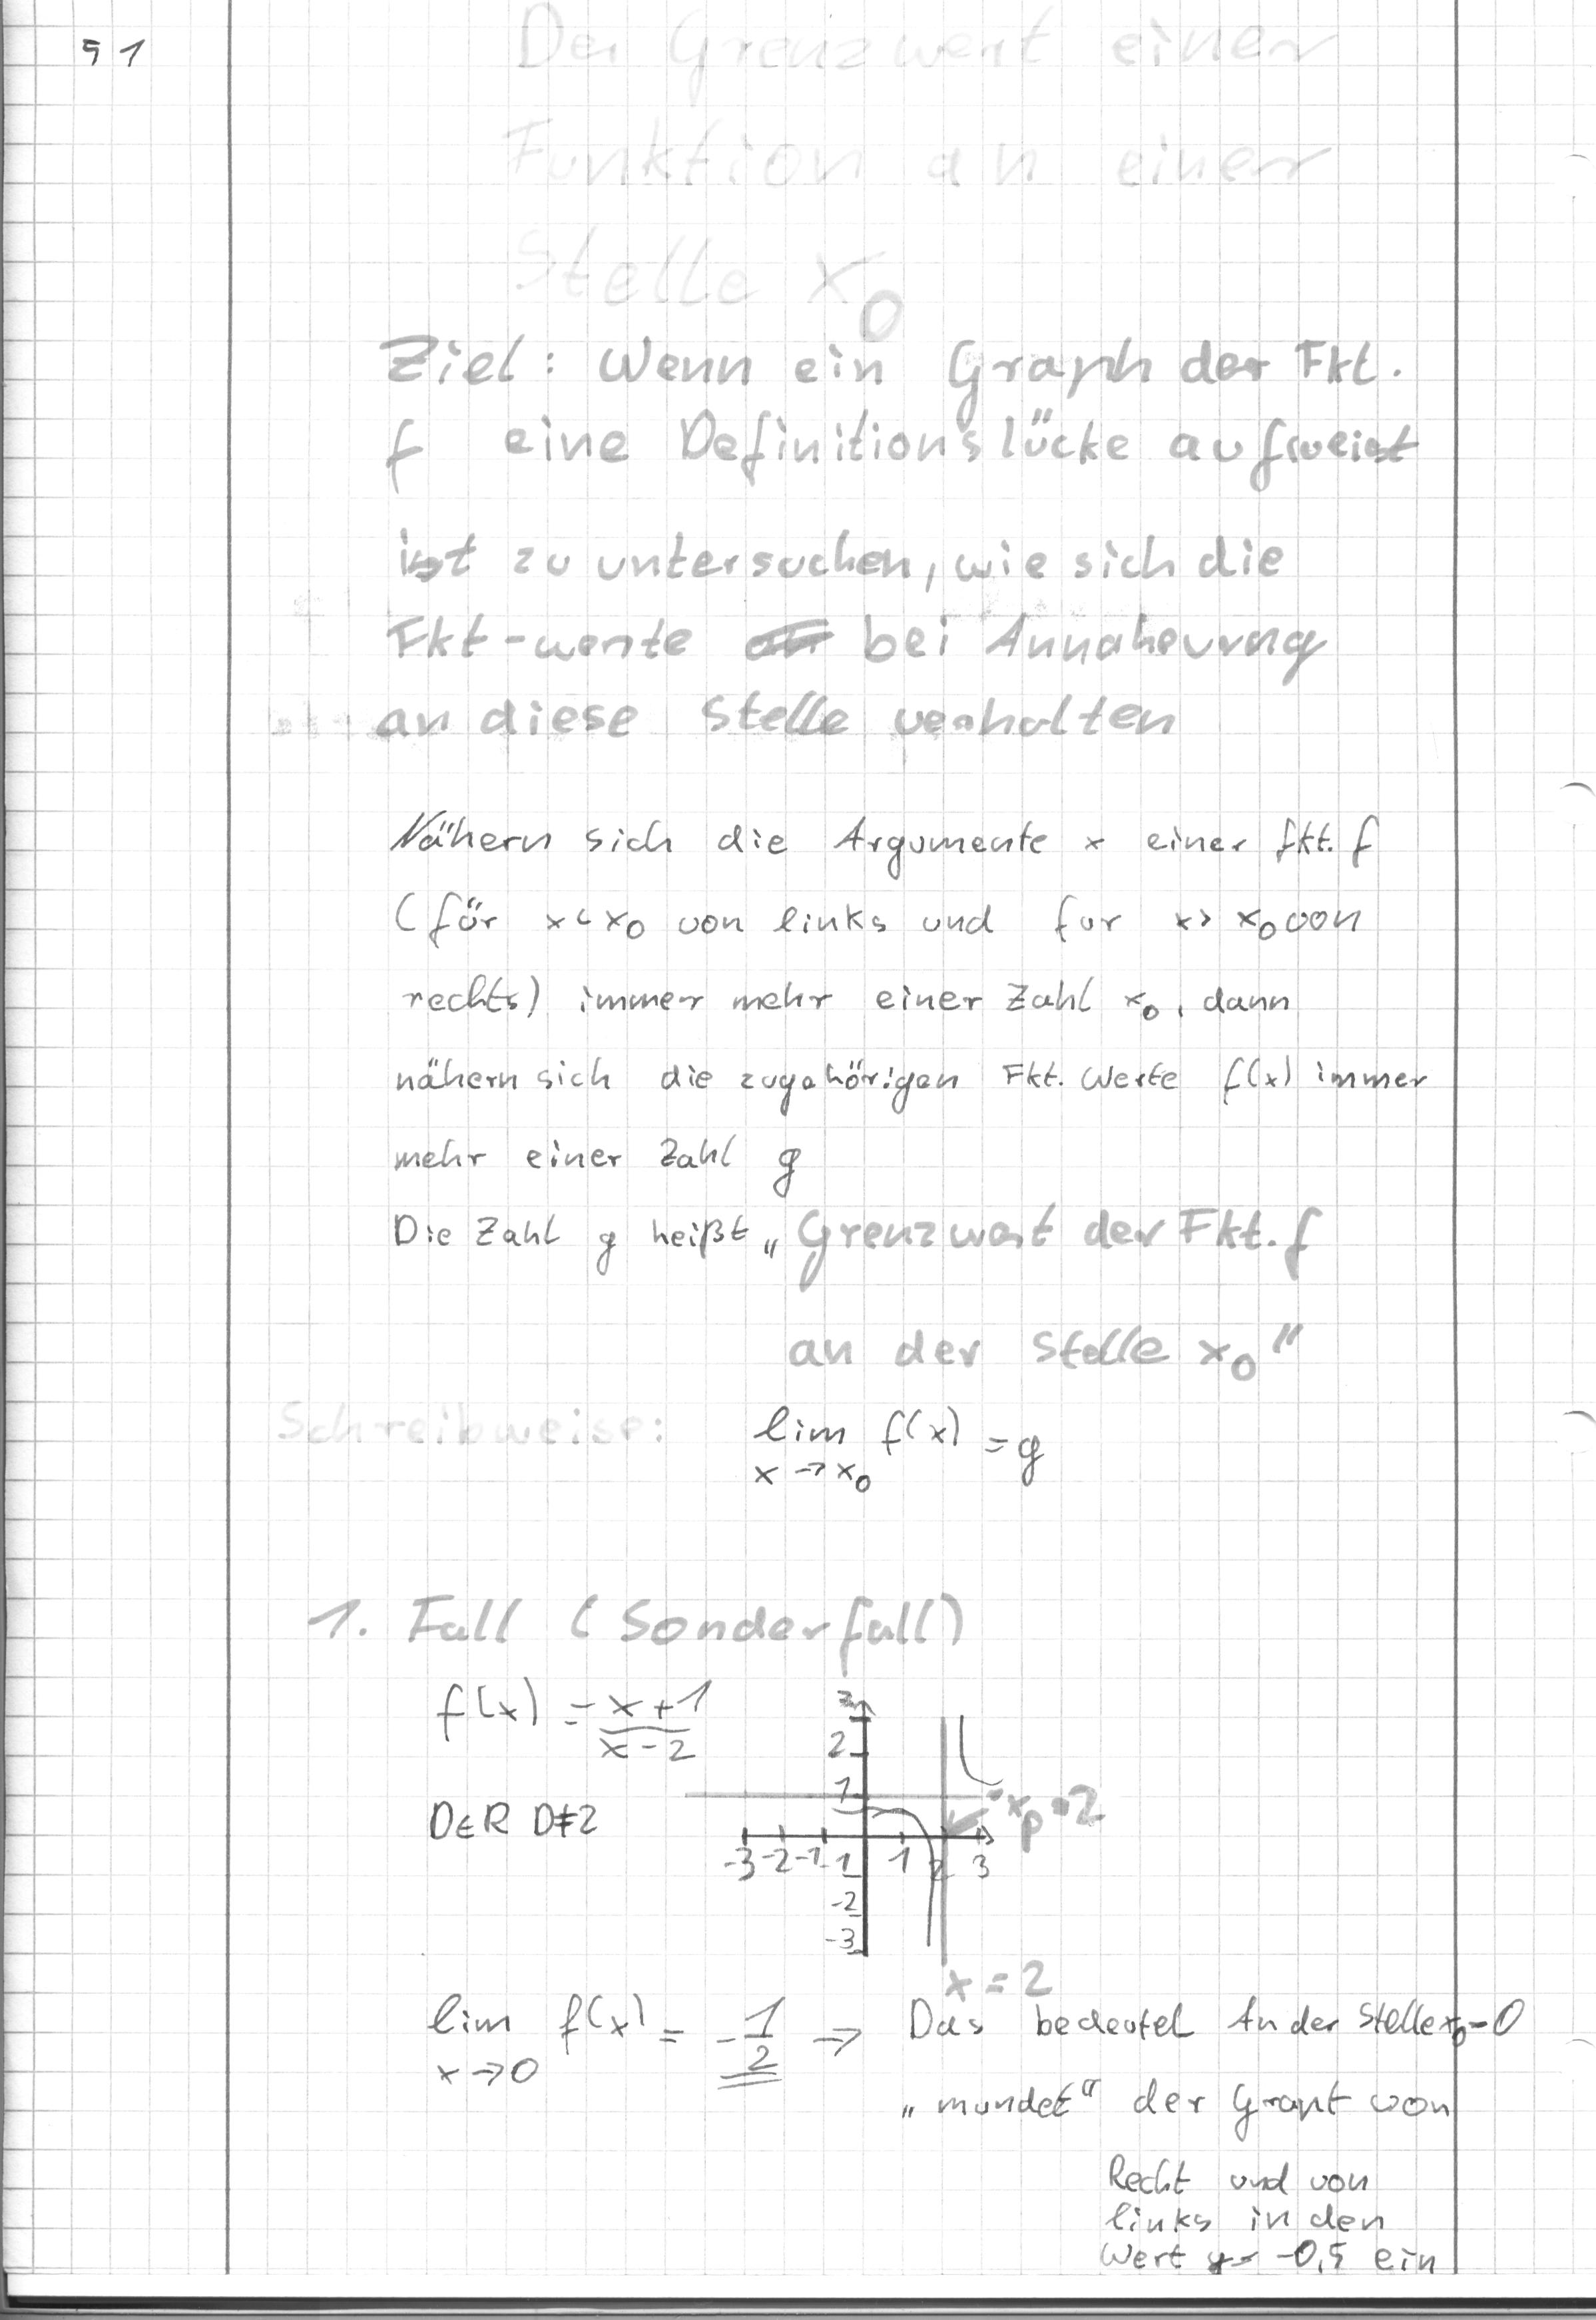 51
Der Grenzwert einer
Funktion an einer
Stelle x₀
Ziel: Wenn ein Graph der Fkt.
f eine Definitionslücke aufweist
ist zu untersuchen, wie sich die
Fkt-werte bei Annaherung
an diese Stelle verhalten
Nähern sich die Argumente x einer fkt. f
(für x < x₀ von links und fur x > x₀ von
rechts) immer mehr einer Zahl x₀, dann
nähern sich die zugehörigen Fkt. Werte f(x) immer
mehr einer Zahl g
Die Zahl g heißt „Grenzwert der Fkt. f
an der Stelle x₀"
Schreibweise: lim f(x) = g
x → x₀
1. Fall (Sonderfall)
f(x) = x+1
x-2
3
2
1
xp = 2
D∈R D≠2
-3 -2 -1 -1 1 2 3
-2
-3
x = 2
lim f(x) = -1/2 => Das bedeutet An der Stelle x₀=0
x → 0
„mundet" der Grapt von
Recht und von
links in den
Wert y= -0,5 ein